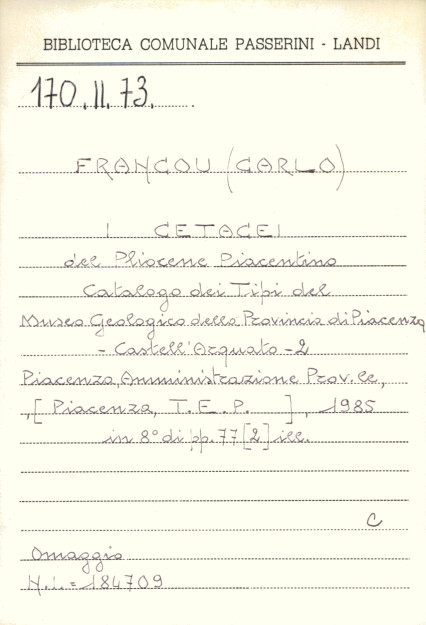 BIBLIOTECA COMUNALE PASSERINI - LANDI
170.II.73.
FRANCOU (CARLO)
I CETACEI
del Pliocene Piacentino
Catalogo dei Tipi del
Museo Geologico della Provincia di Piacenza
- Castell'Arquato - 2
Piacenza, Amministrazione Prov.le,
,[ Piacenza, T.E.P. ], 1985
in 8° di pp. 77 [2] ill.
C
Omaggio
N.i. = 184709